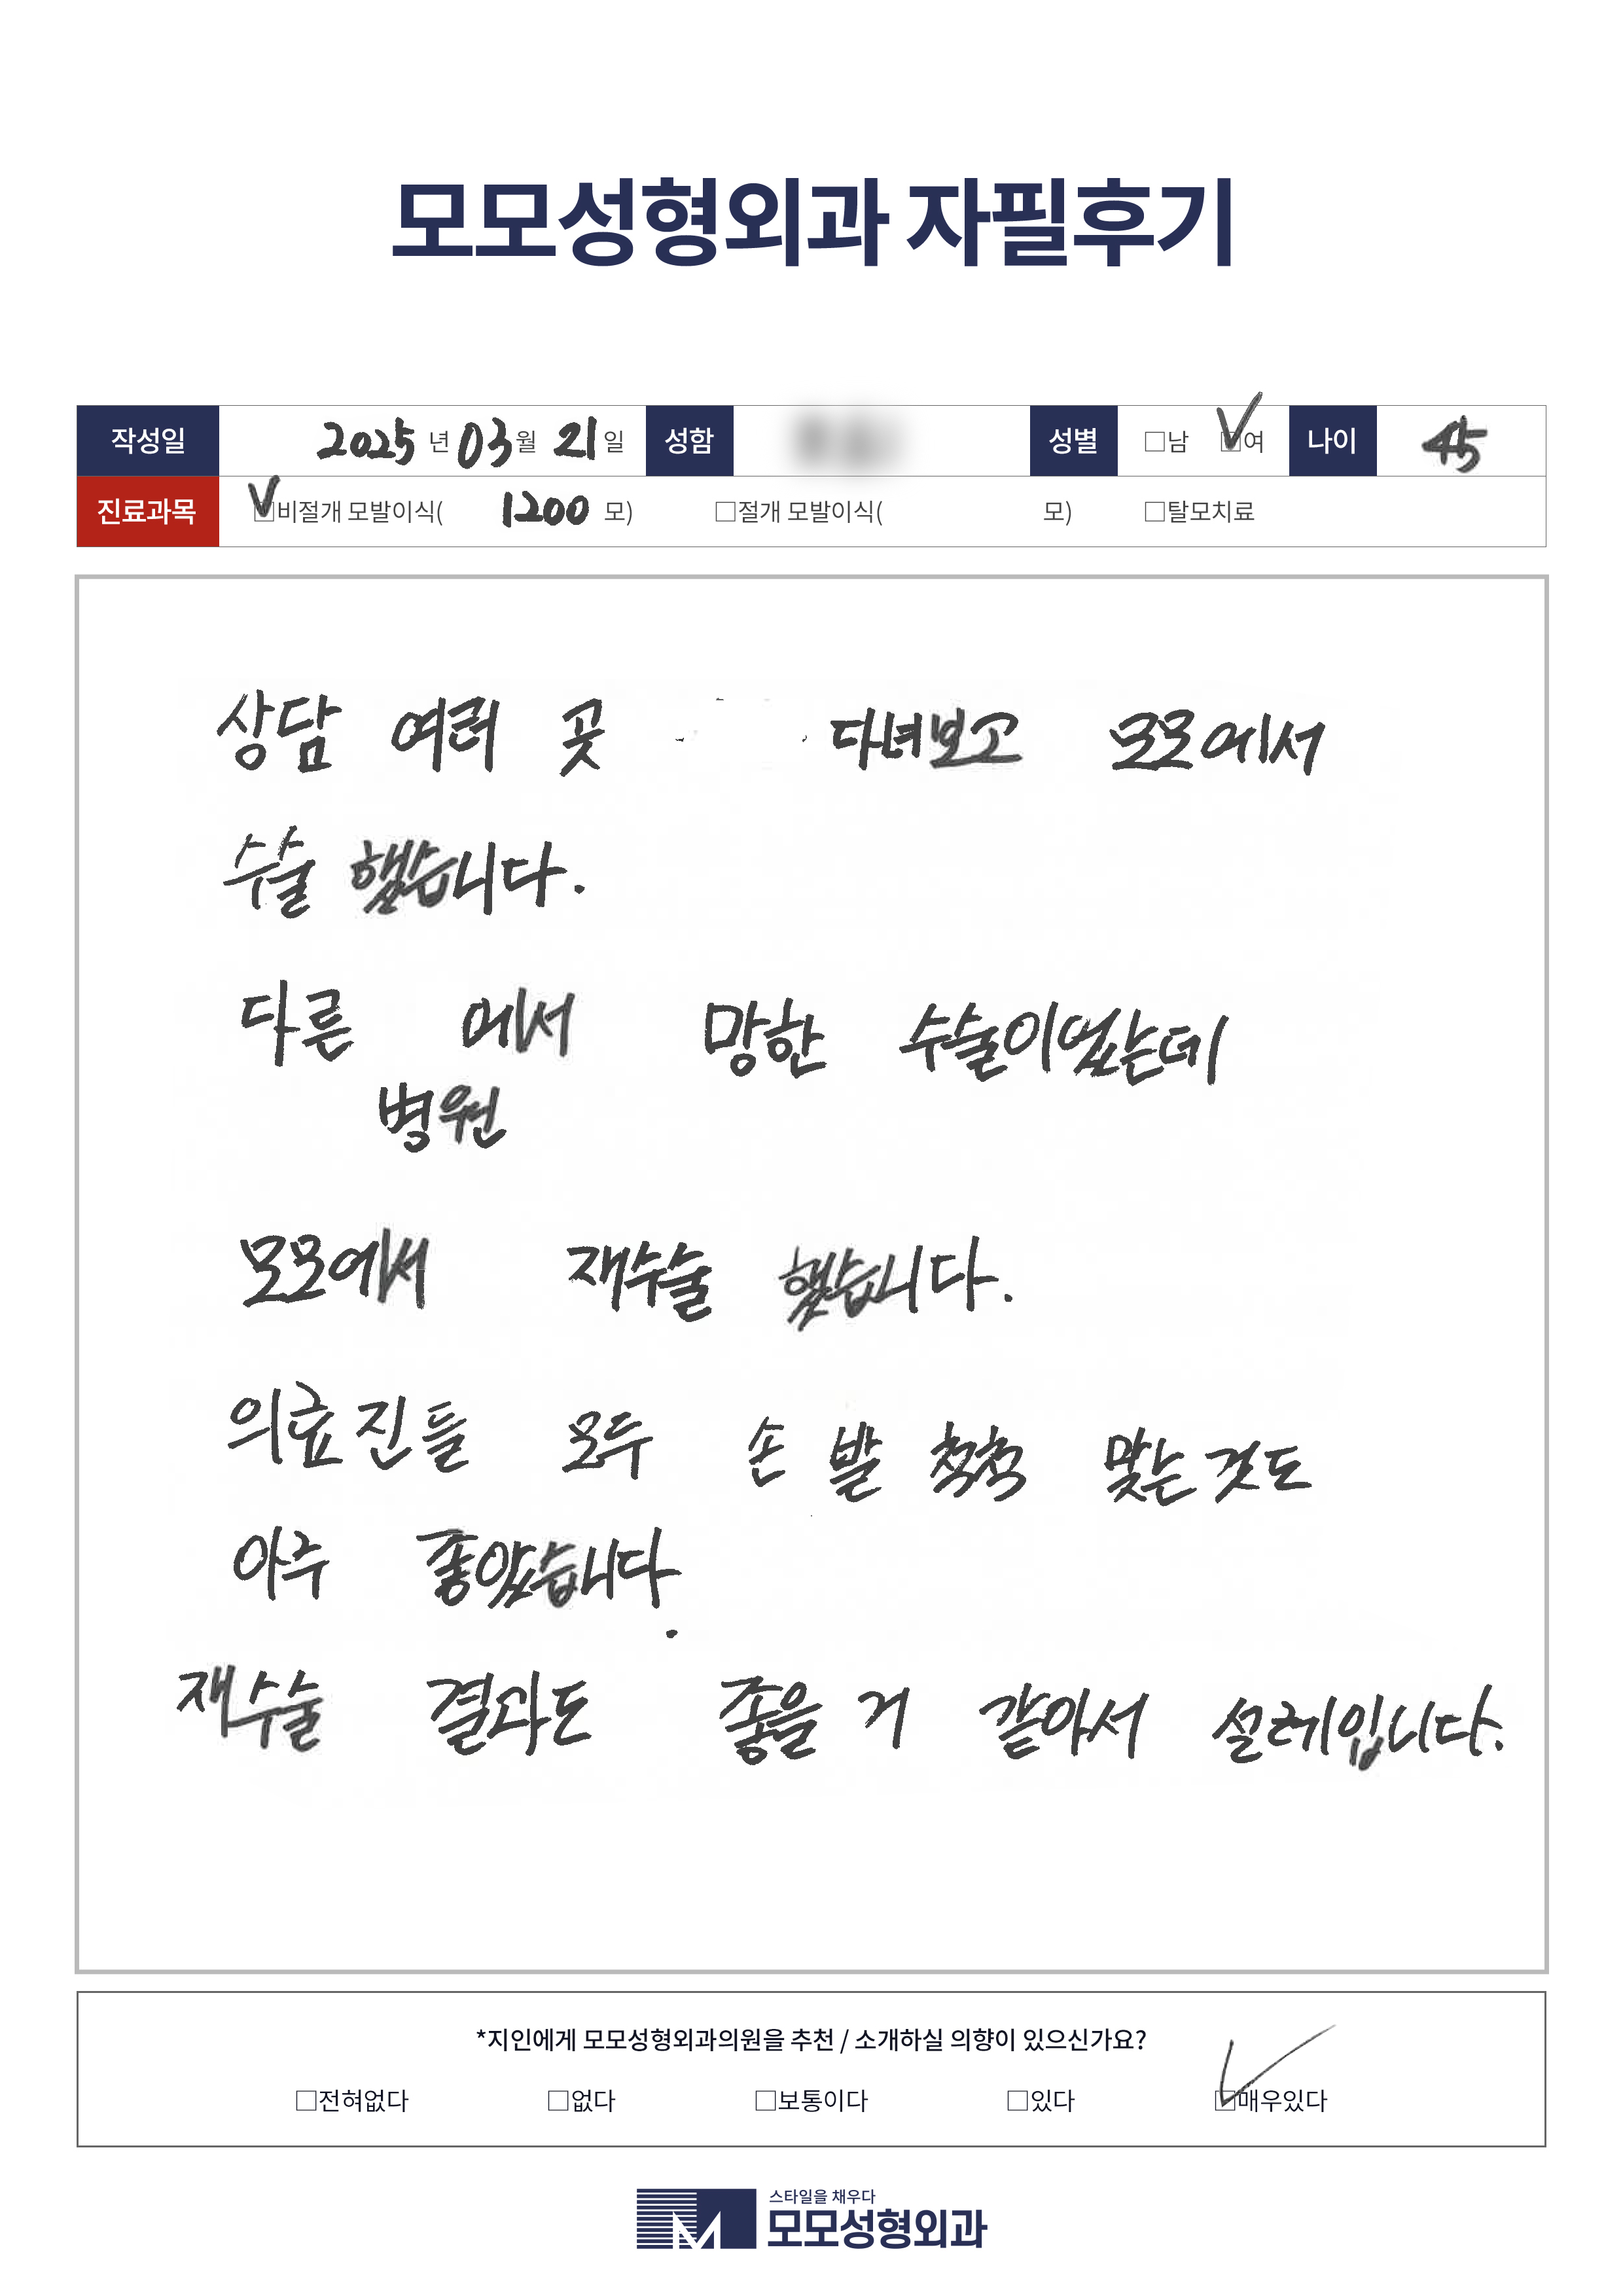 모모성형외과 자필후기
작성일 2025 년 03 월 21 일 성함 성별 □남 ☑여 나이 45
진료과목 ☑비절개 모발이식( 1200 모) □절개 모발이식( 모) □탈모치료
상담 여러 곳 다녀보고 모모에서
수술 했습니다.
다른 에서 망한 수술이었는데
병원
모모에서 재수술 했습니다.
의료진들 모두 손 발 척척 맞는것도
아주 좋았습니다.
재수술 결과도 좋을 거 같아서 설레입니다.
*지인에게 모모성형외과의원을 추천 / 소개하실 의향이 있으신가요?
□전혀없다 □없다 □보통이다 □있다 ☑매우있다
스타일을 채우다
모모성형외과